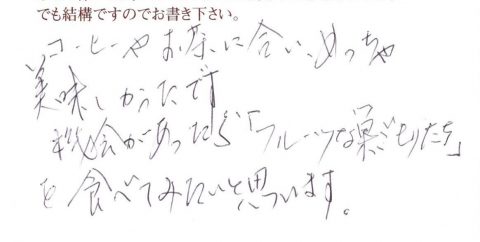 でも結構ですのでお書き下さい。
コーヒーやお茶に合い、めっちゃ
美味しかったです
機会があったら「フルーツな巣ごもりたち」
を食べてみたいと思っています。